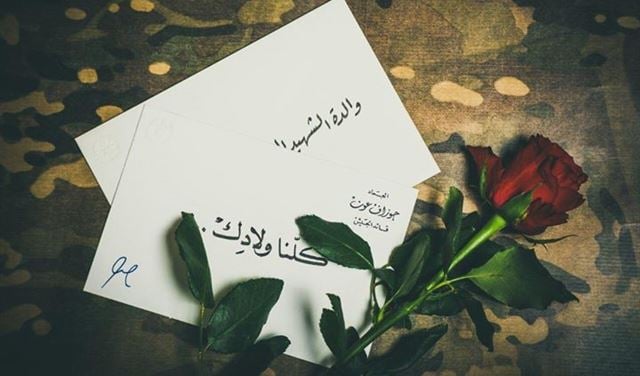 والدة الشهيد
العماد
جوزاف عون
قائد الجيش
كلّنا ولادِكْ.